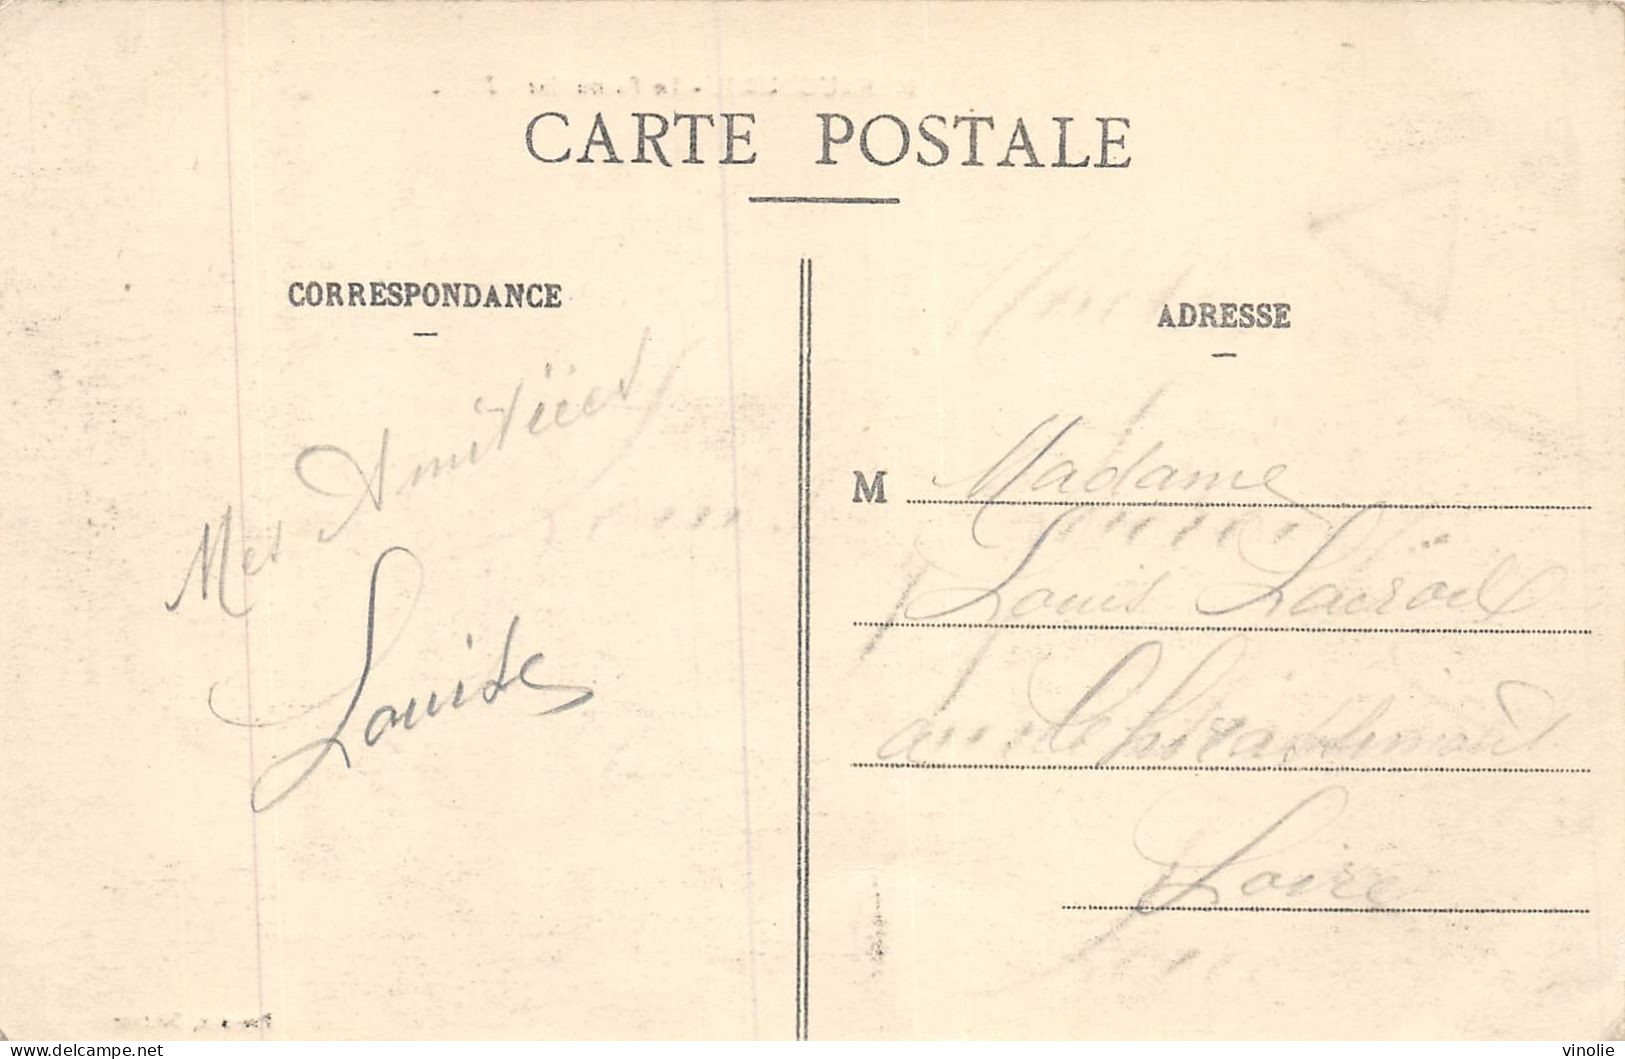 CARTE POSTALE
CORRESPONDANCE
Mes Amitiées
Louise
ADRESSE
M Madame
Louis Lacroix
Loire
delcampe.net
vinolie